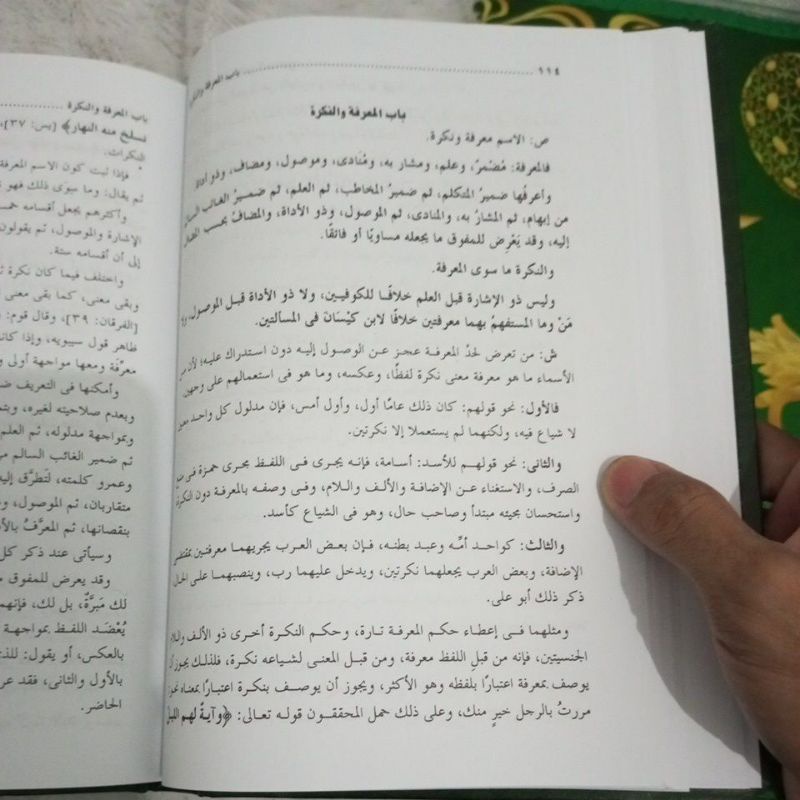 ١١٤ ............ باب المعرفة والنكرة
باب المعرفة والنكرة
ص: الاسم معرفة ونكرة.
فالمعرفة: مُضْمرٌ، وعلم، ومشار به، ومُنَادى، وموصول، ومضاف، وذو أداة
وأعرفُها ضميرُ المتكلم، ثم ضمير المخاطب، ثم العلم، ثم ضميرُ الغائب السالم
من إبهام، ثم المشارُ به، والمنادى، ثم الموصول، وذو الأداة، والمضافُ بحسب المضاف
إليه، وقد يَعْرِض للمفوق ما يجعله مساويًا أو فائقًا.
والنكرة ما سوى المعرفة.
وليس ذو الإشارة قبل العلم خلافًا للكوفيين، ولا ذو الأداة قبل الموصول، ولا
مَنْ وما المستفهمُ بهما معرفتين خلافًا لابن كَيْسَان فى المسألتين.
ش: من تعرض لحدّ المعرفة عجز عن الوصول إليه دون استدراك عليه؛ لأن من
الأسماء ما هو معرفة معنى نكرة لفظًا، وعكسه، وما هو فى استعمالهم على وجهين.
فالأول: نحو قولهم: كان ذلك عامًا أول، وأول أمس، فإن مدلول كل واحد معين
لا شياع فيه، ولكنهما لم يستعملا إلا نكرتين.
والثانى: نحو قولهم للأسد: أسامة، فإنه يجرى فى اللفظ مجرى حمزة فى منع
الصرف، والاستغناء عن الإضافة والألف واللام، وفى وصفه بالمعرفة دون النكرة
واستحسان مجيئه مبتدأ وصاحب حال، وهو فى الشياع كأسد.
والثالث: كواحد أمّه وعبد بطنه، فإن بعض العرب يجريهما معرفتين بمقتضى
الإضافة، وبعض العرب يجعلهما نكرتين، ويدخل عليهما رب، وينصبهما على الحال
ذكر ذلك أبو على.
ومثلهما فى إعطاء حكم المعرفة تارة، وحكم النكرة أخرى ذو الألف واللام
الجنسيتين، فإنه من قبل اللفظ معرفة، ومن قبل المعنى لشياعه نكرة، فلذلك يجوز أن
يوصف بمعرفة اعتبارًا بلفظه وهو الأكثر، ويجوز أن يوصف بنكرة اعتبارًا بمعناه نحو:
مررتُ بالرجل خيرٍ منك، وعلى ذلك حمل المحققون قوله تعالى: ﴿وآيةٌ لهم الليل
باب المعرفة والنكرة ............
نسلخ منه النهار﴾ [يس: ٣٧]،
النكرات.
فإذا ثبت كون الاسم المعرفة
ثم يقال: وما سوى ذلك فهو
وأكثرهم يجعل أقسامه خمسة
الإشارة والموصول، ثم يقولون
إلى أن أقسامه ستة.
واختلف فيما كان نكرة
وبقى معنى، كما بقى معنى
[الفرقان: ٣٩]، وقال قوم:
ظاهر قول سيبويه، وإذا كان
معرّفة ومعها مواجهة أولى
وأمكنها فى التعريف
وبعدم صلاحيته لغيره،
وبمواجهة مدلوله، ثم العلم
ثم ضمير الغائب السالم من
وعمرو كلمته، لتَطرَّق إليه
متقاربان، ثم الموصول،
بنقصانها، ثم المعرَّفُ بالأداة
وسيأتى عند ذكر كل
وقد يعرض للمفوق
لك مَبَرَّةٌ، بل لك، فإنهما
يُعْضَد اللفظ بمواجهة
بالعكس، أو يقول:
بالأول والثانى، فقد
الحاضر.